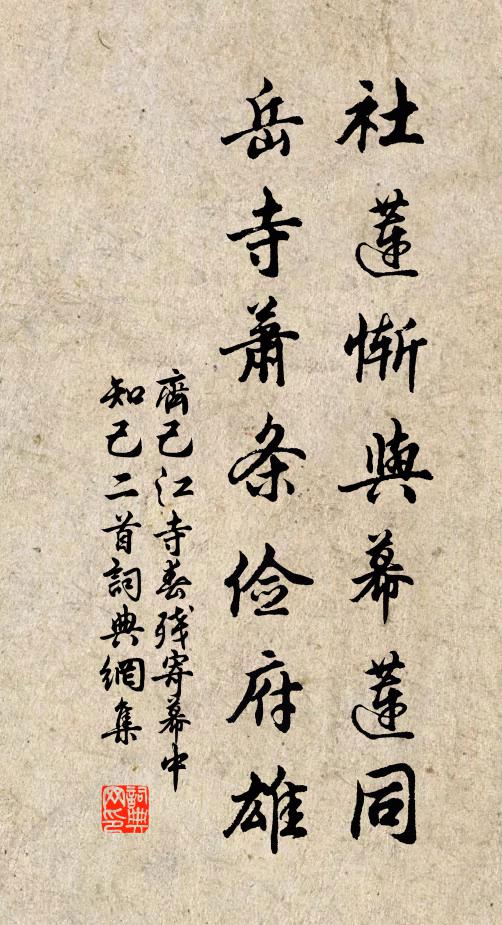 社蓮慚與幕蓮同
岳寺蕭条俭府雄
齊己江寺春残寄幕中
知己二首詞典網集
詞典网印